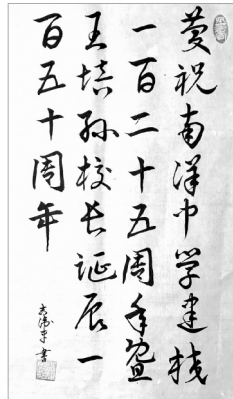 庆祝南洋中学建校
一百二十五周年暨
王培孙校长诞辰一
百五十周年